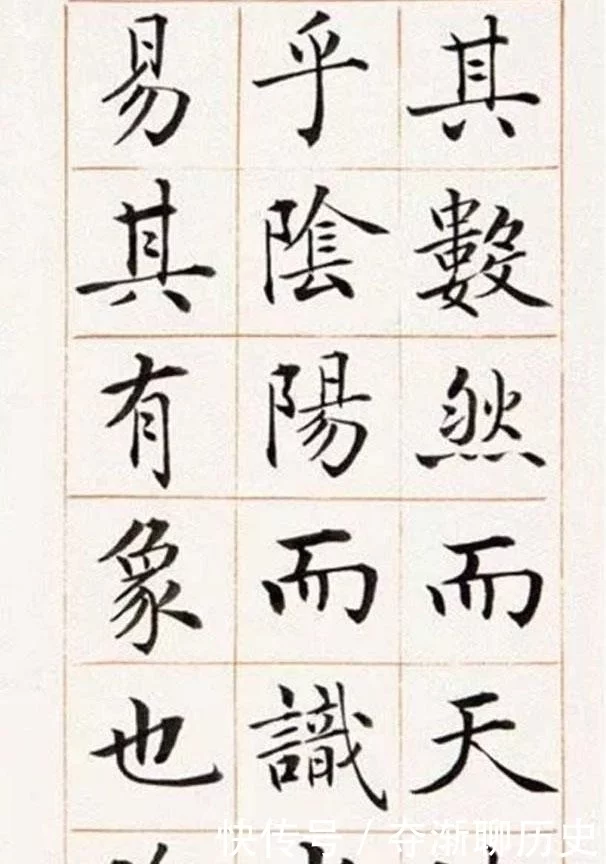 其數然而天
乎陰陽而識
易其有象也
快传号 / 渐聊历史